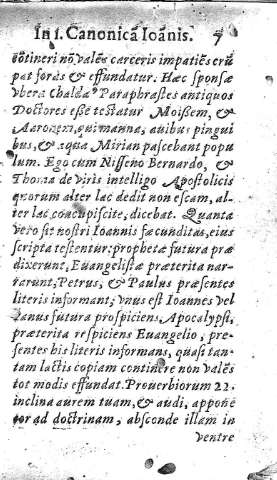 In 1. Canonicā Ioānis. 7
cōtineri nō valēs carceris impatiēs erū
pat forās & effundatur. Hæc sponsæ
vbera Chaldæ⁹ Paraphrastes antiquos
Doctores esse testatur Moisem, &
Aaronem, qui manna, auibus pingui
bus, & aqua Mirian pascebant popu
lum. Ego cum Nisseno Bernardo, &
Thoma de viris intelligo Apostolicis
quorum alter lac dedit non escam, al-
ter lac cōcupiscite, dicebat. Quanta
vero sit nostri Ioannis fæcunditas, eius
scripta testentur: prophetæ futura præ
dixerunt, Euangelistæ præterita nar-
rarunt, Petrus, & Paulus præsentes
literis informant; vnus est Ioannes vel
vnus futura prospiciens, Apocalypsi,
præterita respiciens Euangelio, præ-
sentes his literis informans, quasi tan-
tam lactis copiam continere non valēs
tot modis effundat. Prouerbiorum 22.
inclina aurem tuam, & audi, appone
cor ad doctrinam, absconde illam in
ventre